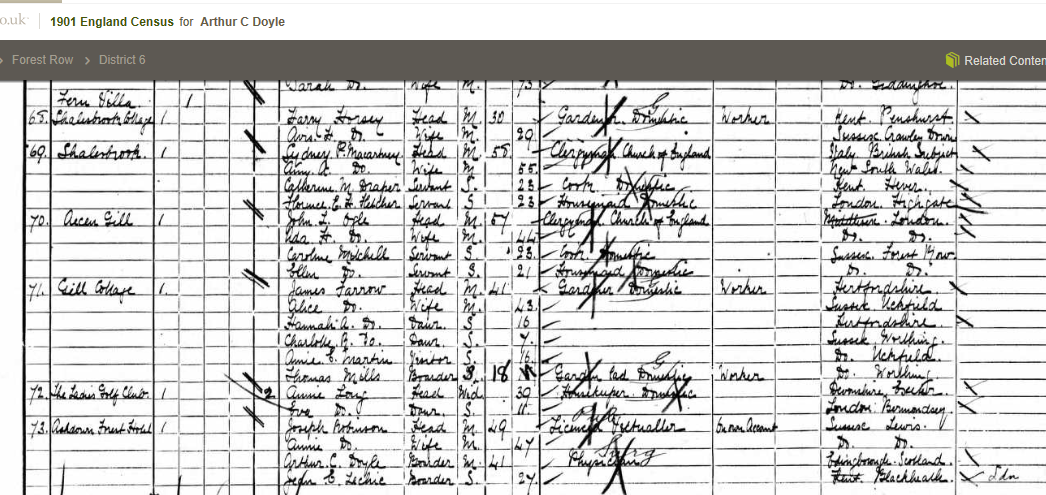 o.uk 1901 England Census for Arthur C Doyle
Forest Row > District 6 Related Conten
Sarah Do. Wife M. 73 Do.
Fern Villa 1
68. Shalesbrook Cottage 1 Harry Horsey Head M. 30 Gardener Domestic Worker Kent Penshurst
Avis H. Do. Wife M. 29 Sussex Crawley Down
69. Shalesbrook. 1 Sydney P. Macartney Head M. 58 Clergyman Church of England Italy British Subject
Amy A. Do. Wife M. 55 New South Wales.
Catherine M. Draper Servant S. 23 Cook Domestic Kent. Hever.
Florence E. H. Fletcher Servant S. 23 Housemaid Domestic London. Highgate
70. Gill 1 John L. Ogle Head M. 57 Clergyman Church of England London.
Ada H. Do. Wife M. 44 Do. Do.
Caroline Mitchell Servant S. 23. Cook Domestic Sussex. Forest Row
Ellen Do. Servant S. 21 Housemaid Domestic Do. Do.
71. Gill Cottage 1 James Farrow Head M. 41 Gardener Domestic Worker Hertfordshire
Alice Do. Wife M. 43. Sussex Uckfield
Hannah A. Do. Daur. S. 16 Hertfordshire.
Charlotte Do. Daur. S. 7. Sussex Worthing.
Annie E. Martin Visitor S. 16 Do. Uckfield.
Thomas Mills Boarder S. 18 Garden Lad Domestic Worker Do. Worthing
72. The Ladies Golf Club. 1 2 Annie Long Head Wid. 39 Housekeeper Domestic Devonshire, Exeter
Eva Do. Daur. S. 11 London: Bermondsey
73. Ashdown Forest Hotel 1 Joseph Robinson Head M. 49 Licensed Victualler Own Account Sussex Lewis.
Annie Do. Wife M. 47 Do. Do.
Arthur C. Doyle Boarder M. 41 Physician Surg Edinborough. Scotland.
Jean E. Leckie Boarder S. 27 Kent Blackheath. Ldn